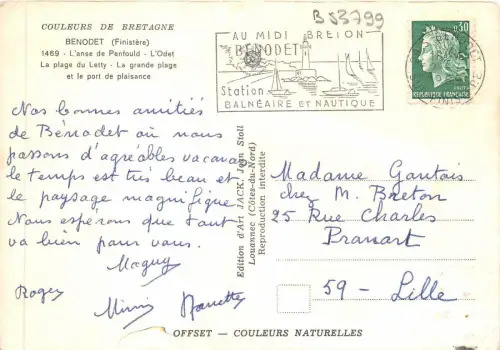 COULEURS DE BRETAGNE
BENODET (Finistère)
1469 - L'anse de Penfould - L'Odet
La plage du Letty - La grande plage
et le port de plaisance
B53799
AU MIDI BRETON
BENODET
Station
BALNÉAIRE ET NAUTIQUE
0,30
REPUBLIQUE FRANÇAISE
Nos bonnes amitiés
de Bénodet où nous
passons d'agréables vacances
le temps est très beau et
le paysage magnifique
Nous espérons que tout
va bien pour vous.
Maguy
Roger
Mimi Nanette
Edition d'Art JACK, Jean Stoll
Louannec (Côtes-du-Nord)
Reproduction interdite
Madame Gantois
chez M. Breton
25 Rue Charles
59 - Lille
OFFSET — COULEURS NATURELLES